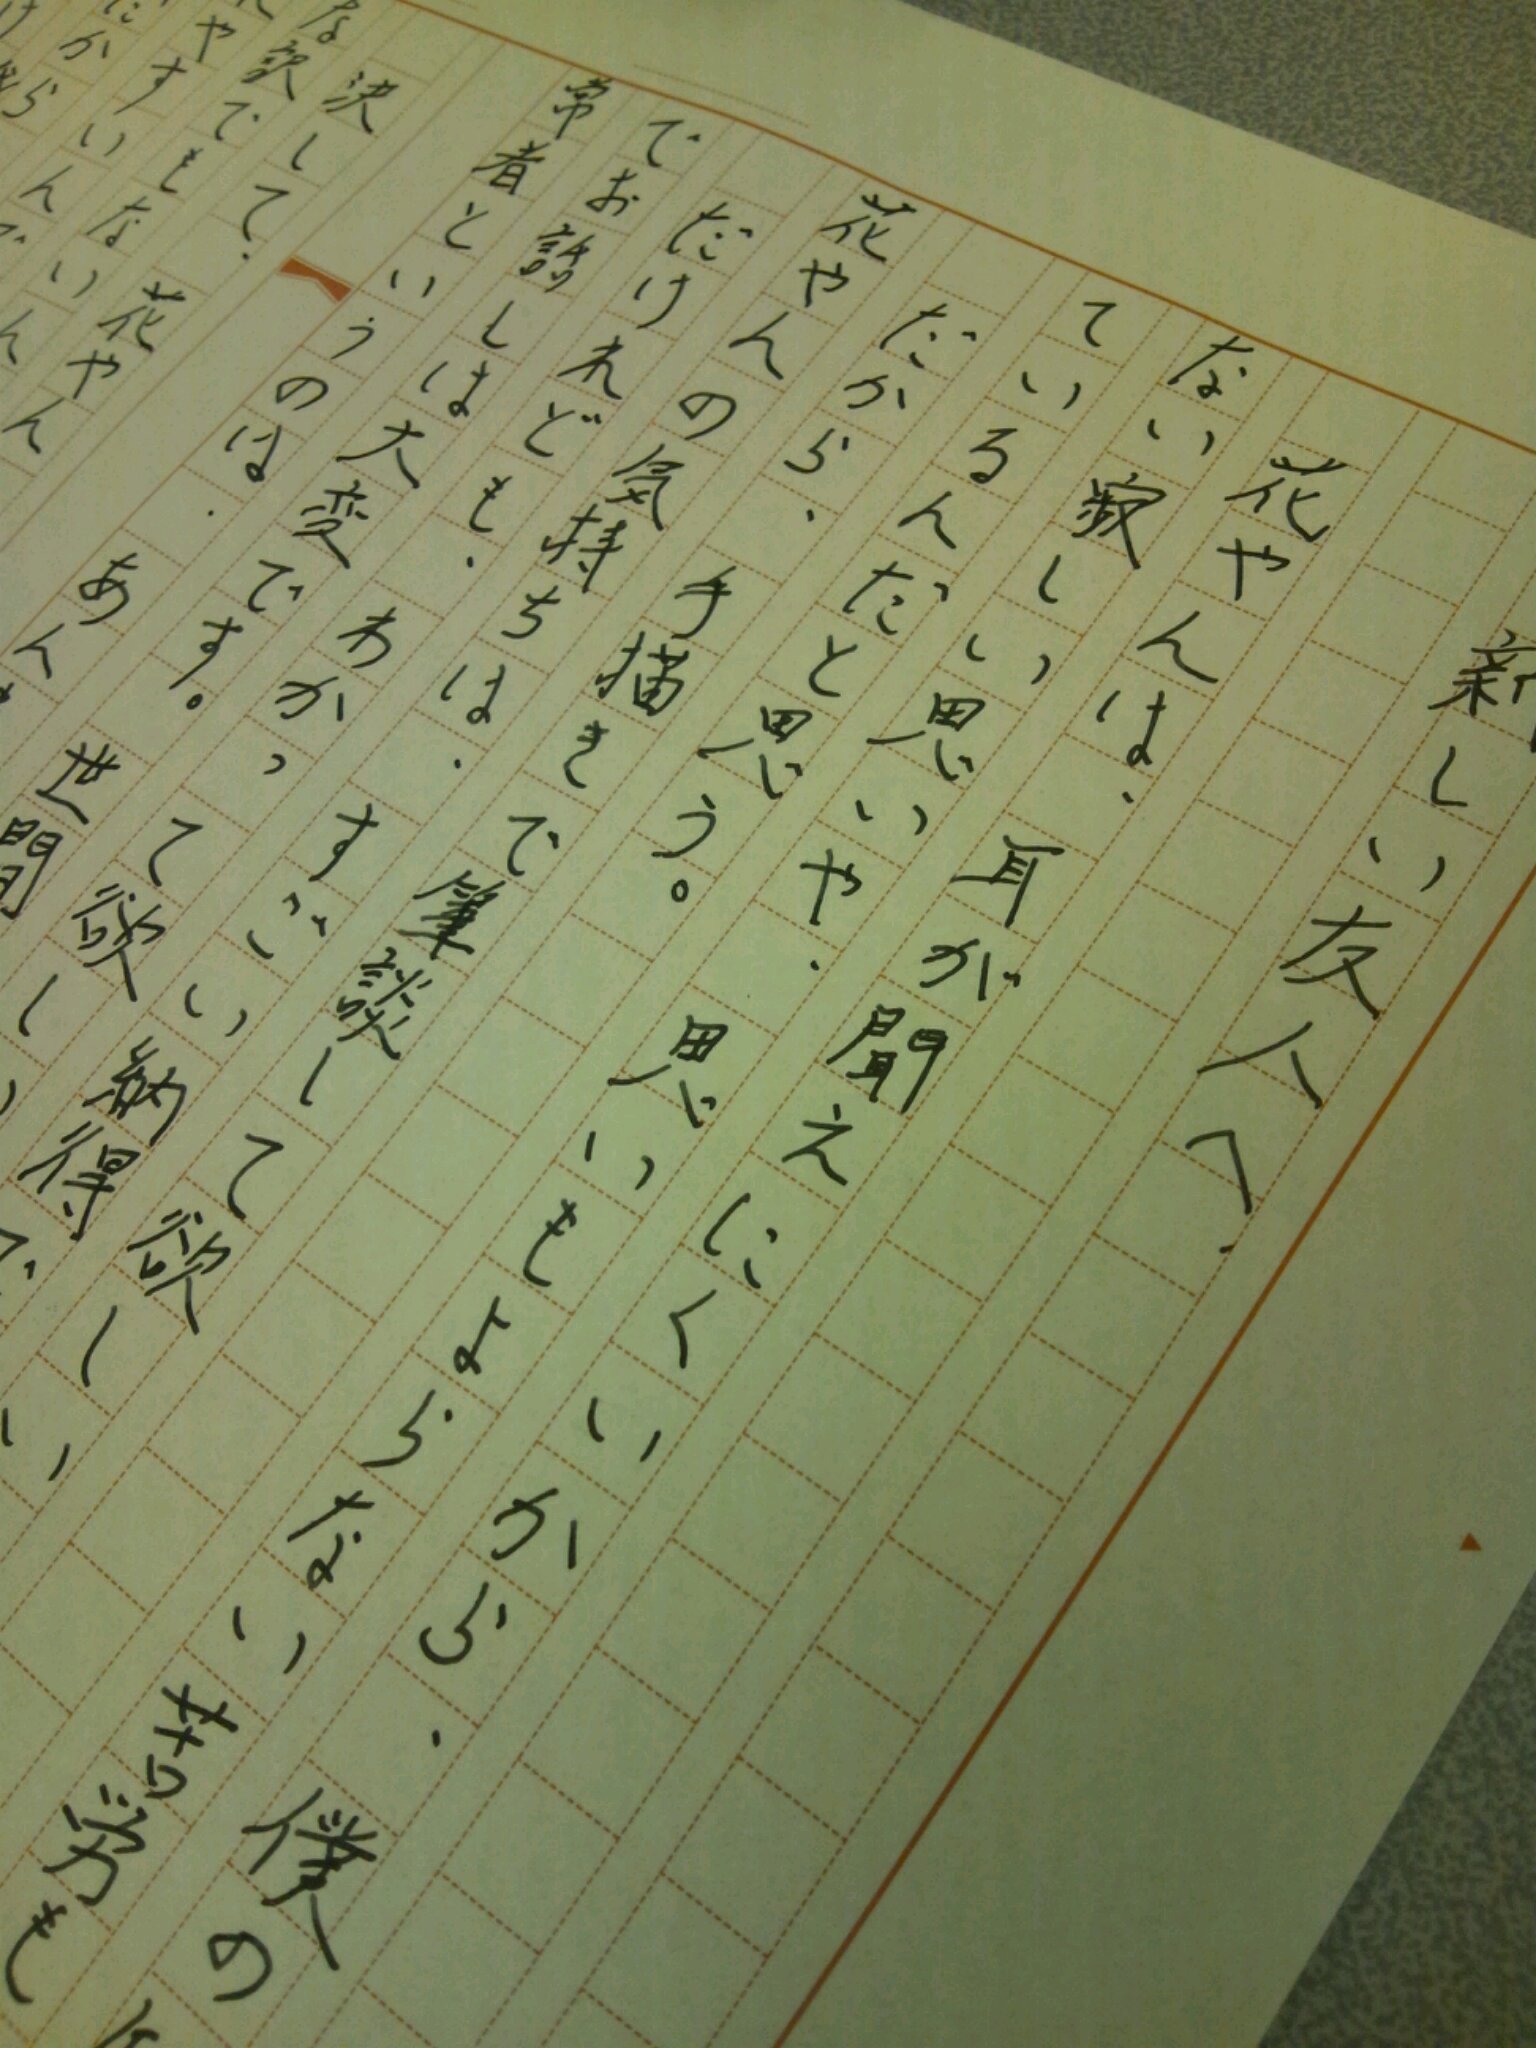 新しい友人へ、
花やんは、耳が聞えにくいから、僕の
ない寂しい思いや、思いもよらない苦労も
ているんだと思う。
だから、手描きで筆談して欲しい
花やんの気持ちは、すごい納得で
だけれども、わかって欲しい
でお話しは大変です。世間
常者というのは、あん
決して、花やん
な訳でもない
やすいんで
だから